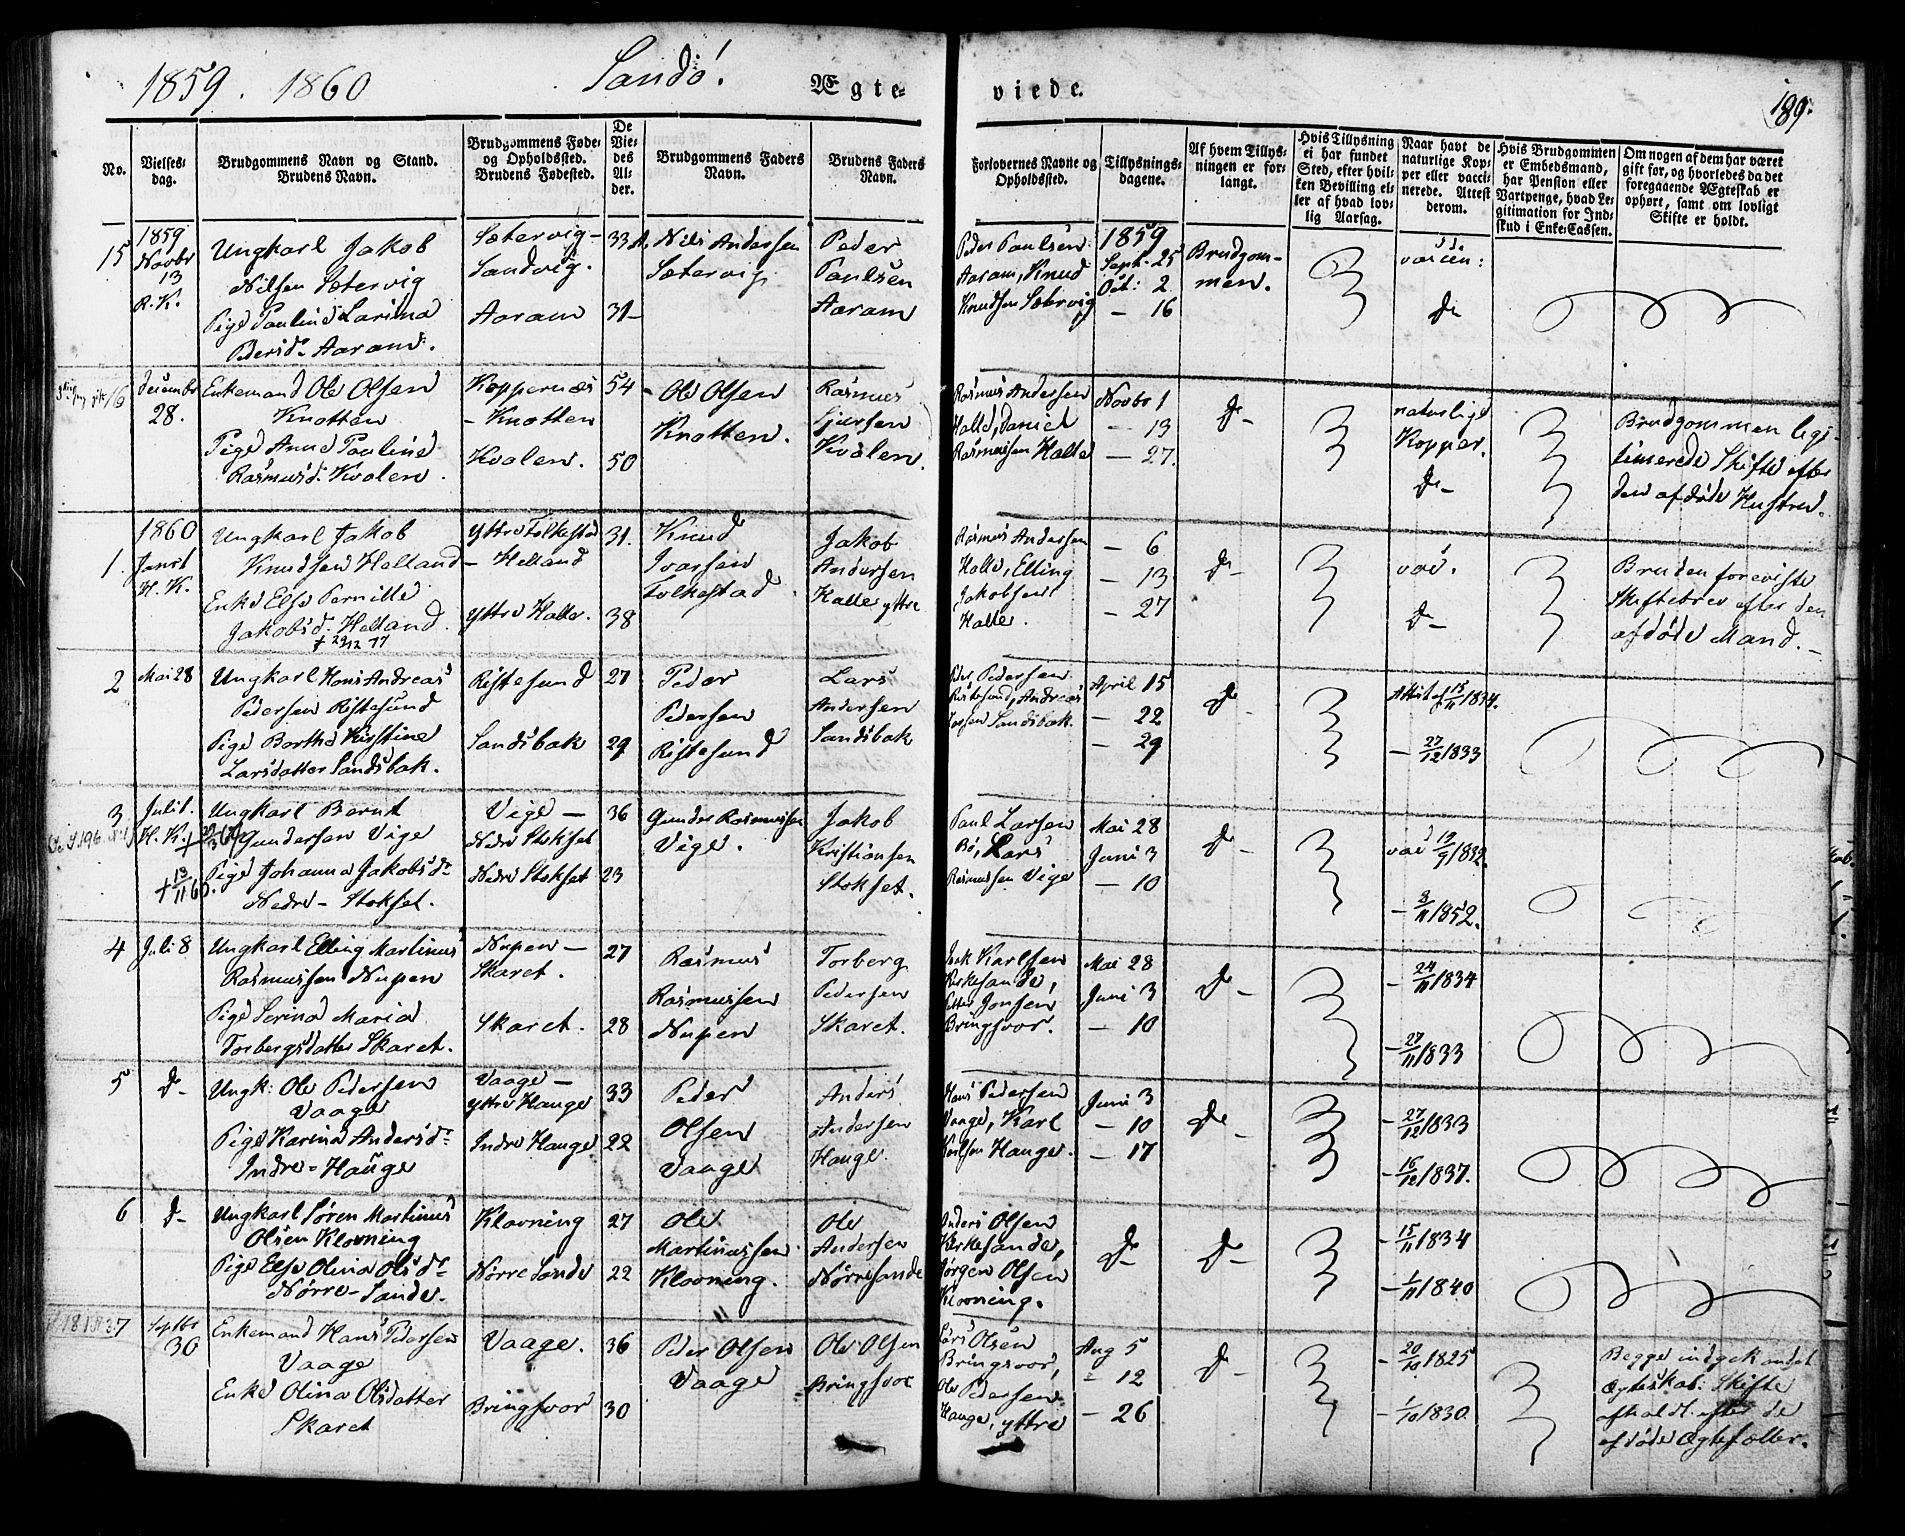 1859. 1860 Sandö. Ægte- viede. 189.
No.
Vielses-
dag.
Brudgommens Navn og Stand.
Brudens Navn.
Brudgommens Føde-
og Opholdssted.
Brudens Fødested.
De
Vie-
des
Al-
der.
Brudgommens Faders
Navn.
Brudens Faders
Navn.
Forlovernes Navne og
Opholdssted.
Tillysnings-
dagene.
Af hvem Tillys-
ningen er for-
langt.
Hvis Tillysning
ei har fundet
Sted, efter hvil-
ken Bevilling el-
ler af hvad lov-
lig Aarsag.
Naar havt de
naturlige Kop-
per eller vacci-
nerede. Attest
derom.
Hvis Brudgommen
er Embedsmand,
har Pension eller
Vartpenge, hvad Le-
gitimation for Ind-
skud i Enke-Cassen.
Om nogen af dem har været
gift før, og hvorledes da det
foregaaende Ægteskab er
ophørt, samt om lovligt
Skifte er holdt.
15
1859
Novbr
13
R. K.
Ungkarl Jakob
Nilsen Sætervig
Pige Pauline Larina
Pedersdr Aaram.
Sætervig-
Sandvig.
Aaram
33
31-
Nils Andersen
Sætervig
Peder
Paulsen
Aaram
Peder Paulsen
Aaram, Knud
Knudsen Sætervig
1859
Sept. 25
Oct: 2
- 16
Brudgom-
men.
vaccin:
Do
16
Decembr
28.
Enkemand Ole Olsen
Knotten
Pige Anne Pauline
Rasmusd. Kvalen
Koppernæs
- Knotten
Kvalen.
54
50
Ole Olsen
Knotten.
Rasmus
Sjursen
Kvalen.
Rasmus Andersen
Halle, Daniel
Rasmussen Halle
Novbr 1
- 13
- 27.
Do-
naturlige
Kopper.
Do-
Brudgommen legi-
timerede Skifte efter
den afdøde Hustrue.
1.
1860
Janr 1
H. K.
Ungkarl Jakob
Knudsen Helland
Enke Else Pernille
Jakobsd. Helland.
† 29/12 77
Yttre Folkestad
- Helland
Yttre Halle.
31.
38
Knud
Ivarsen
Folkestad
Jakob
Andersen
Halle yttre
Rasmus Andersen
Halle, Elling
Jakobsen
Halle.
- 6
- 13
- 27
Do-
vac.
Do-
Bruden foreviste
Skiftebrev efter den
afdøde Mand.-
2
Mai 28
Ungkarl Hans Andreas
Pedersen Ristesund
Pige Berthe Kirstine
Larsdatter Sandsbak.
Ristesund
Sandsbak
27
29
Peder
Pedersen
Ristesund
Lars
Andersen
Sandsbak
Peder Pedersen
Ristesund, Andreas
Sandsbak.
April 15
- 22
- 29
Do-
Attest af 15/11 1834.
- 27/12 1833
3
Juli 1.
H. K.
† 13/11 60.
Ungkarl Bernt
Gundersen Vige
Pige Johanna Jakobsdr
Nedre- Stokset.
Vige -
Nedre Stokset
Nedre Stokset
36
23
Gunder Rasmussen
Vige.
Jakob
Kristiansen
Stokset.
Paul Larsen
Bø, Lars
Rasmussen Vige
Mai 28
Juni 3
- 10
Do-
vac 19/9 1832.
- 3/11 1852.
4
Juli 8
Ungkarl Elling Martinus
Rasmussen Nupen
Pige Serina Maria
Torbergsdatter Skaret.
Nupen -
Skaret.
Skaret.
27
28
Rasmus
Rasmussen
Nupen
Torberg
Pedersen
Skaret.
Karlsen
Kirkesande,
Petter Jonsen
Bringsvor.
Mai 28
Juni 3
- 10
Do-
- 24/11 1834
- 27/11 1833
5
Do-
Ungk: Ole Pedersen
Vaage
Pige Karina Andersdr
Indre-Hauge
Vaage -
Yttre Hauge
Indre Hauge
33
22
Peder
Olsen
Vaage
Anders
Andersen
Hauge
Hans Pedersen
Vaage, Karl
Karlsen Hauge.
Juni 3
- 10
- 17
Do-
- 27/12 1833
- 16/12 1837.
6
Do-
Ungkarl Søren Martinus
Olsen Klovning
Pige Else Olina Olsdr
Nørre-Sande.
Klovning
Nørre Sande
27
22
Ole
Martinussen
Klovning.
Ole
Andersen
Nørresande
Anders Olsen
Kirkesande,
Jørgen Olsen
Klovning.
Do-
Do-
- 15/11 1834
- 1/11 1840
7
Septbr
30
Enkemand Hans Pedersen
Vaage
Enke Olina Olsdatter
Skaret
Vaage.
Bringsvor
36
30
Peder Olsen
Vaage
Ole Olsen
Bringsvor
Lars Olsen
Bringsvor,
Ole Pedersen
Hauge, yttre
Aug 5
- 12
- 26
Do-
- 20/10 1825
- 1/10 1830.
Begge indgik andet
Ægteskab: Skifte
afholdt efter de
afdøde Ægtefæller.